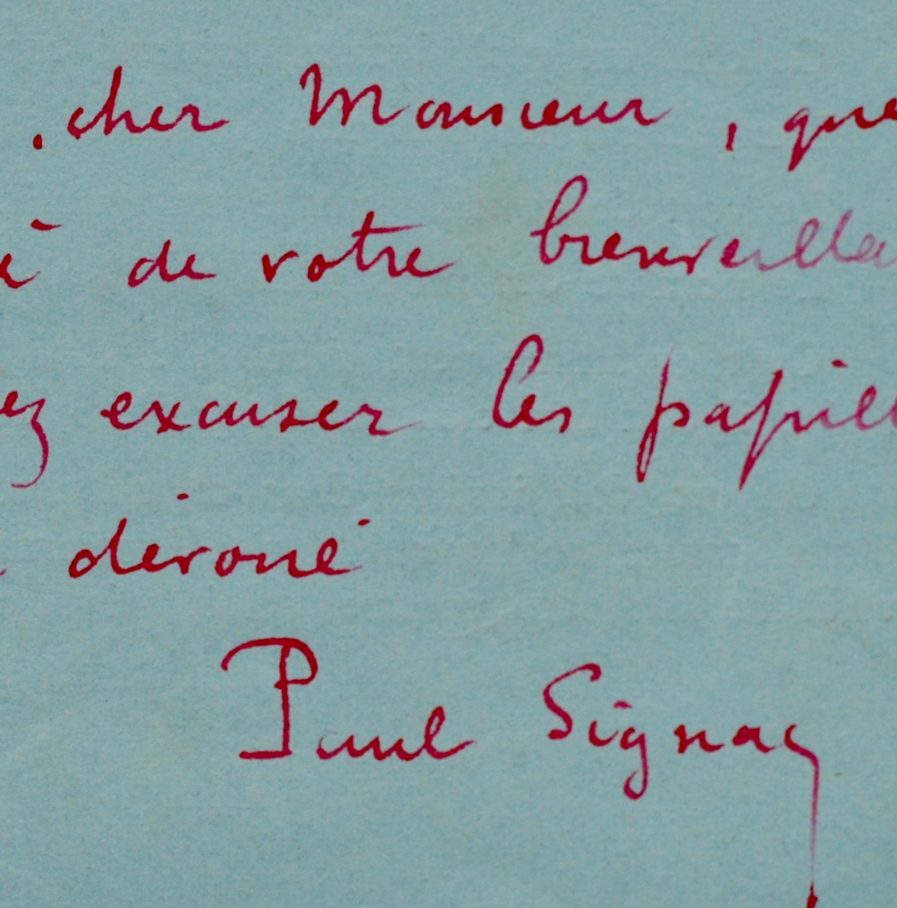 , cher Monsieur, que
à de votre bienveilla
ez excuser les papill
dévoué
Paul Signac